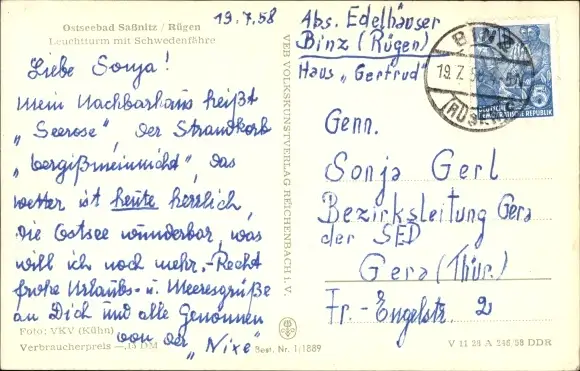 Ostseebad Saßnitz / Rügen
Leuchtturm mit Schwedenfähre
19.7.58
Liebe Sonja!
Mein Nachbarhaus heißt
"Seerose", der Strandkorb
"Vergißmeinnicht", das
Wetter ist heute herrlich,
die Ostsee wunderbar, was
will ich noch mehr. - Recht
frohe Urlaubs- u. Meeresgrüße
an Dich und alle Genossen
von der "Nixe"
Foto: VKV (Kühn)
Verbraucherpreis —,15 DM
Best. Nr. 1/1889
VEB VOLKSKUNSTVERLAG REICHENBACH i. V.
Abs. Edelhäuser
Binz (Rügen)
Haus "Gertrud"
BINZ
19.7.58
(RÜGEN)
DEUTSCHE
DEMOKRATISCHE REPUBLIK
5
Genn.
Sonja Gerl
Bezirksleitung Gera
der SED
Gera (Thür.)
Fr.-Engelstr. 2
V 11 28 A 246/58 DDR